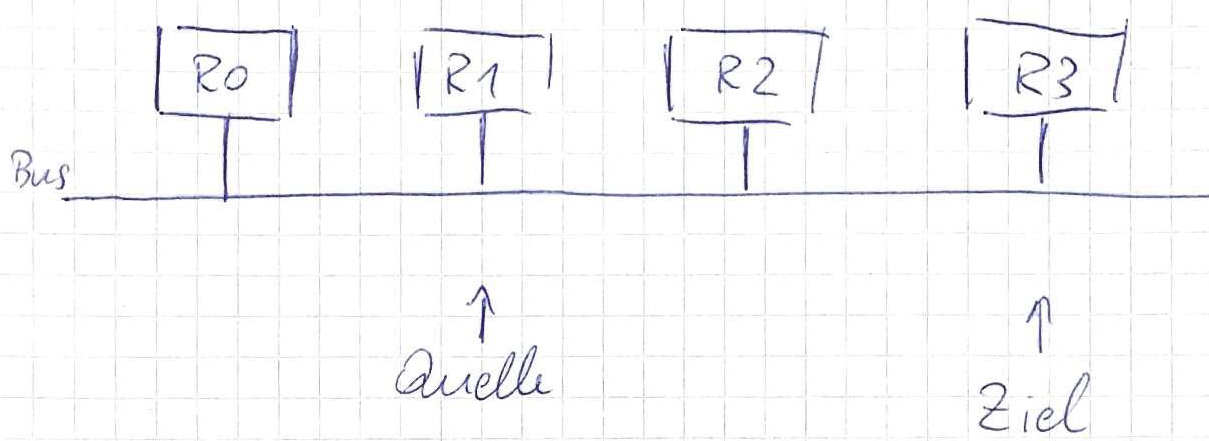 R0 R1 R2 R3
Bus
Quelle
Ziel